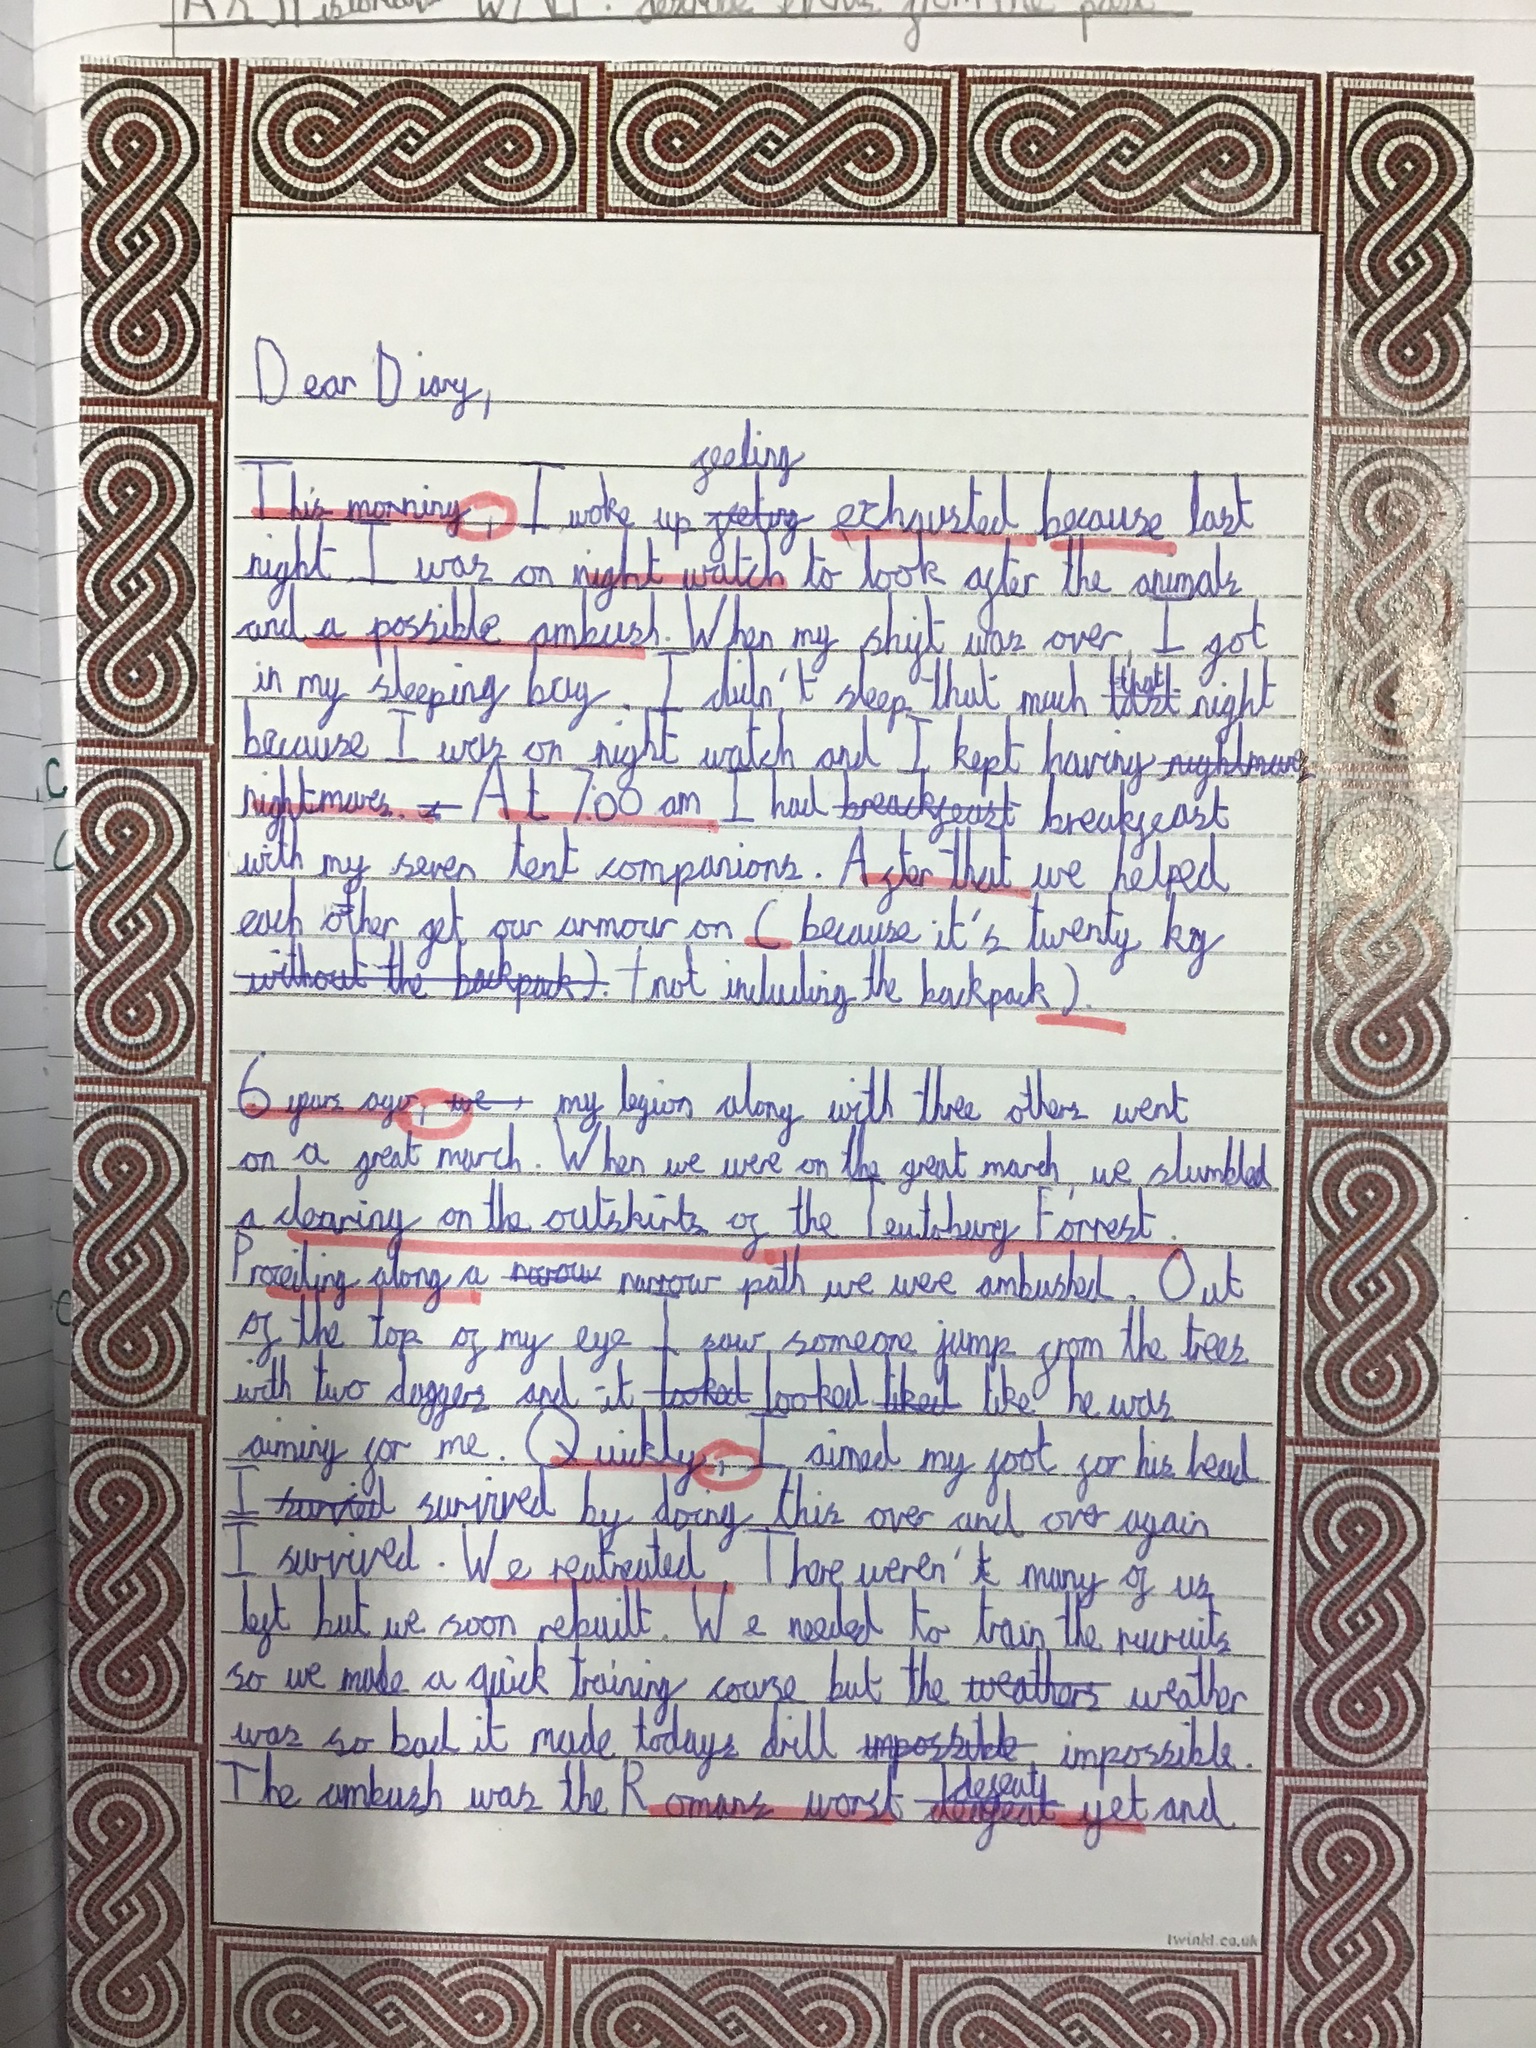 As Historians W.A.L.T: describe events from the past
Dear Diary,
feeling
This morning, I woke up feeling exhausted because last
night I was on night watch to look after the animals
and a possible ambush. When my shift was over, I got
in my sleeping bag. I didn't sleep that much that night
because I was on night watch and I kept having nightmares
nightmares. At 7:00 am I had breackfeast breakfeast
with my seven tent companions. After that we helped
each other get our armour on ( because it's twenty kg
without the backpack). not including the backpack ).
6 years ago, we my legion along with three others went
on a great march. When we were on the great march, we stumbled
a clearing on the outskirts of the Teutoburg Forrest.
Proceiling along a narow narrow path we were ambushed. Out
of the top of my eye I saw someone jump from the trees
with two daggers and it looked looked liked like he was
aiming for me. Quickly, I aimed my foot for his head
I survied survived by doing this over and over again
I survived. We reatreated. There weren't many of us
left but we soon rebuilt. We needed to train the recruits
so we made a quick training couse but the weathers weather
was so bad it made todays drill impossible impossible.
defeats
The ambush was the Romans worst yet and
twinkl.co.uk